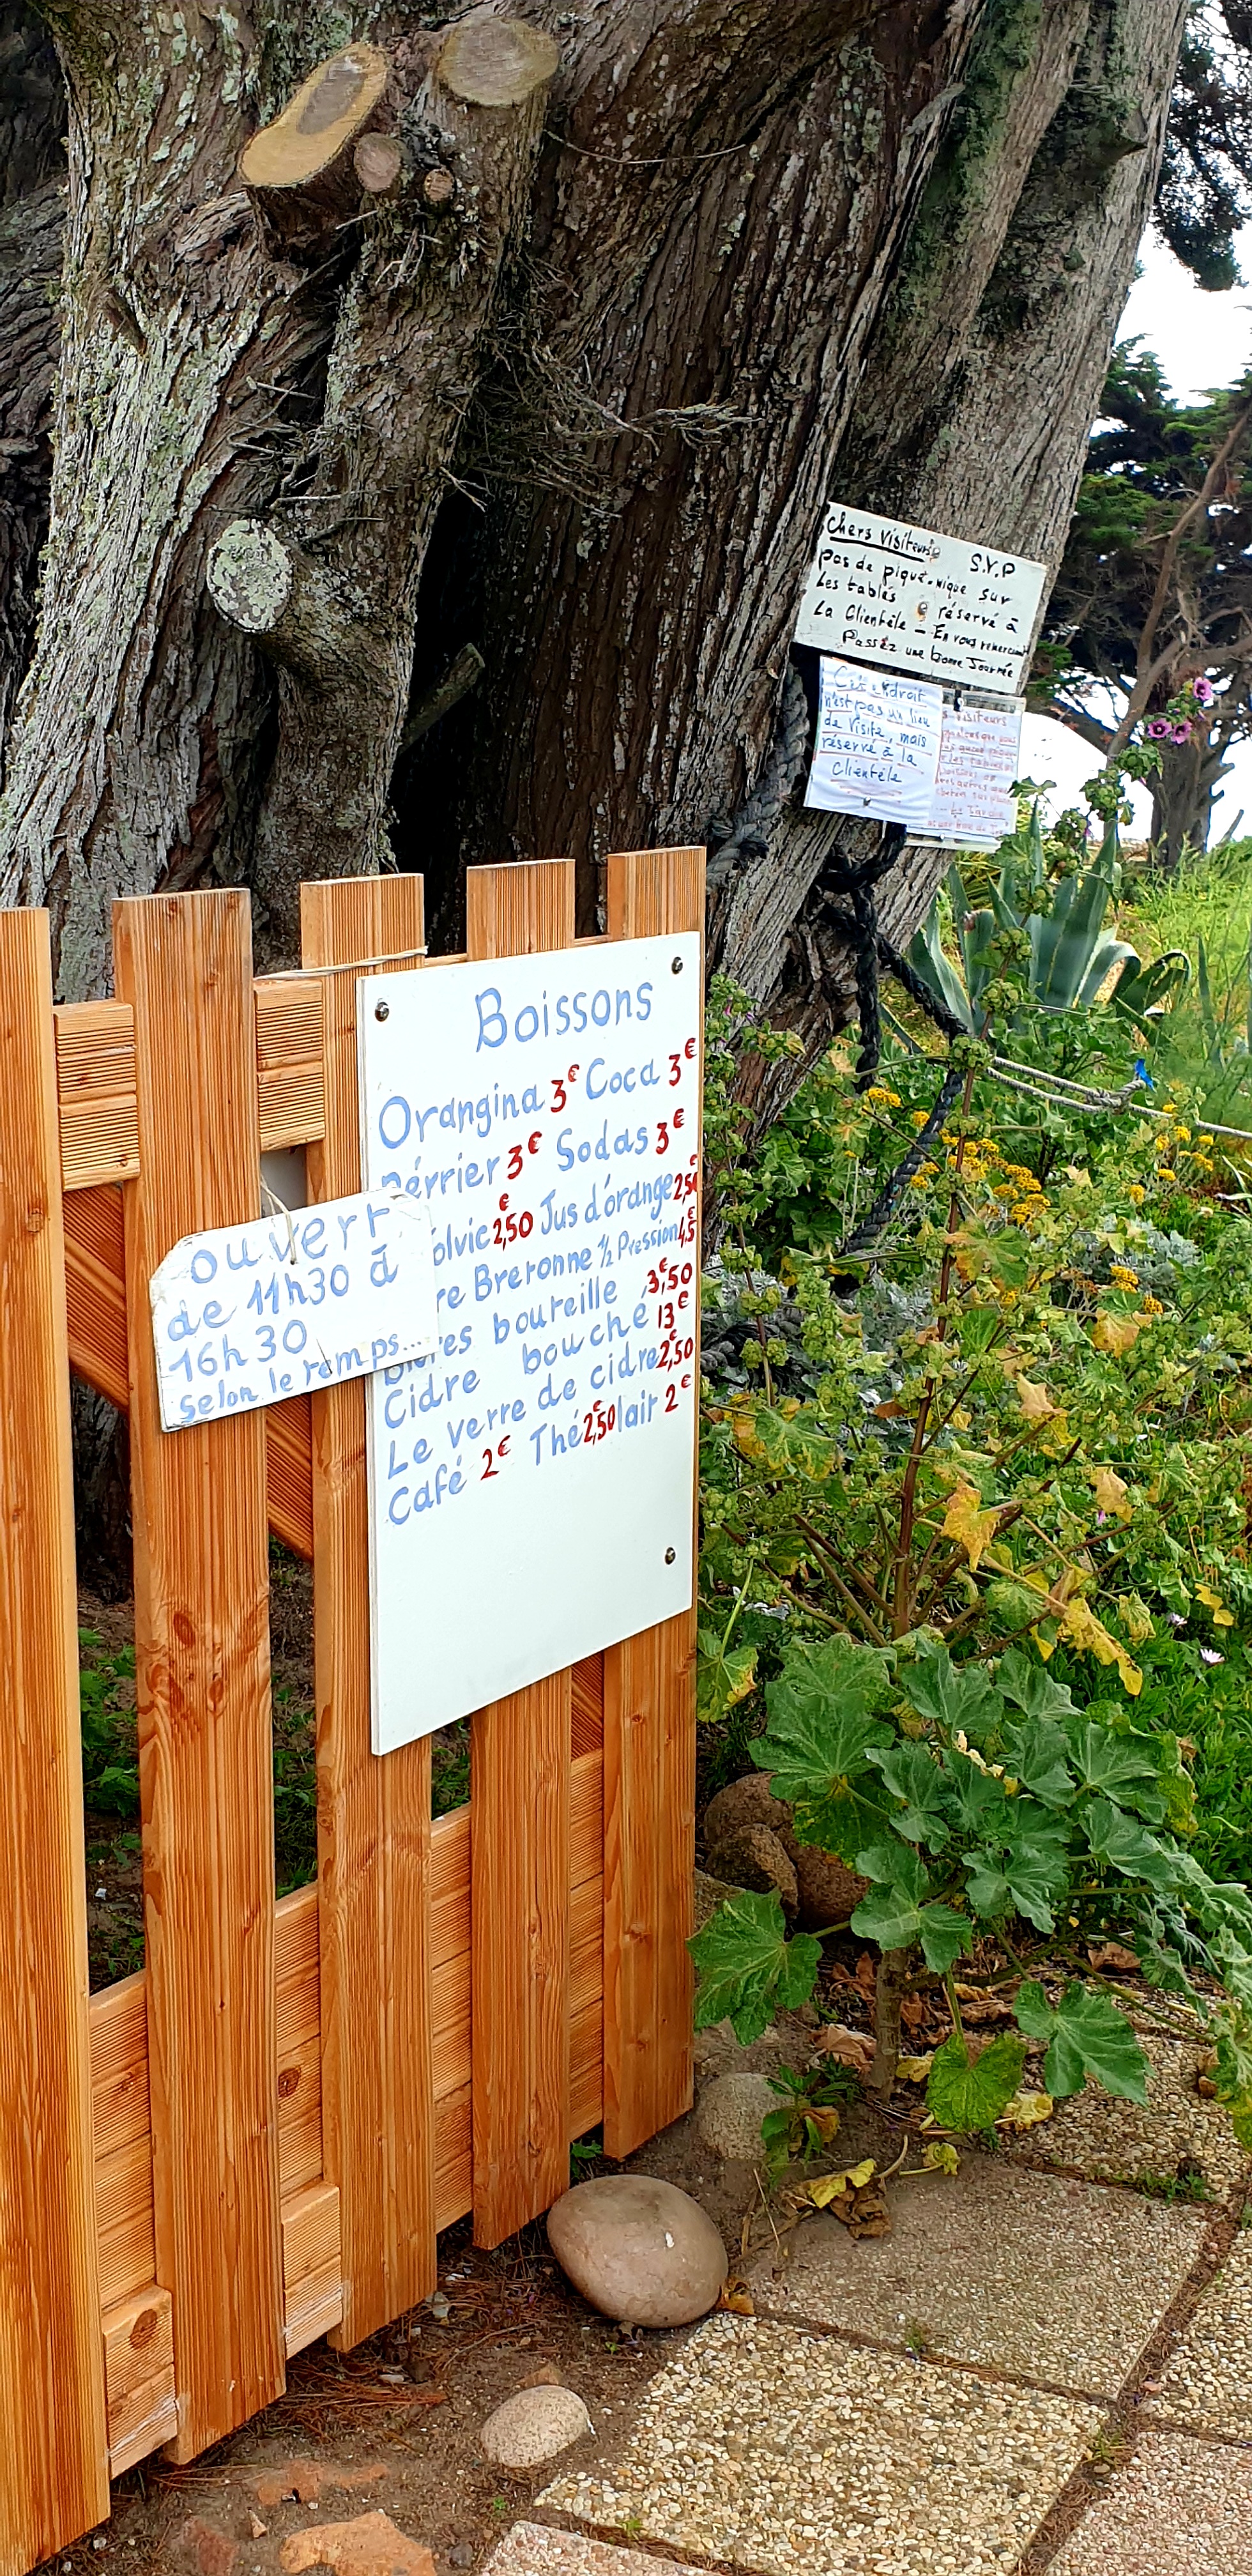 Chers visiteurs S.V.P
pas de pique-nique sur
Les tables réservé à
La Clientèle - En vous remerciant
Passez une bonne Journée
n'est pas un lieu
de visite, mais
réservé à la
Clientèle
visiteurs
Boissons
Orangina 3€ Coca 3€
Périer 3€ Sodas 3€
olvic 2,50€ Jus d'orange 2,5€
re Bretonne 1/2 Pression 4,5€
res bouteille 3,50€
Cidre bouché 13€
Le verre de cidre 2,50€
Café 2€ Thé 2,50€ lait 2€
ouvert
de 11h30 à
16h30
selon le temps...